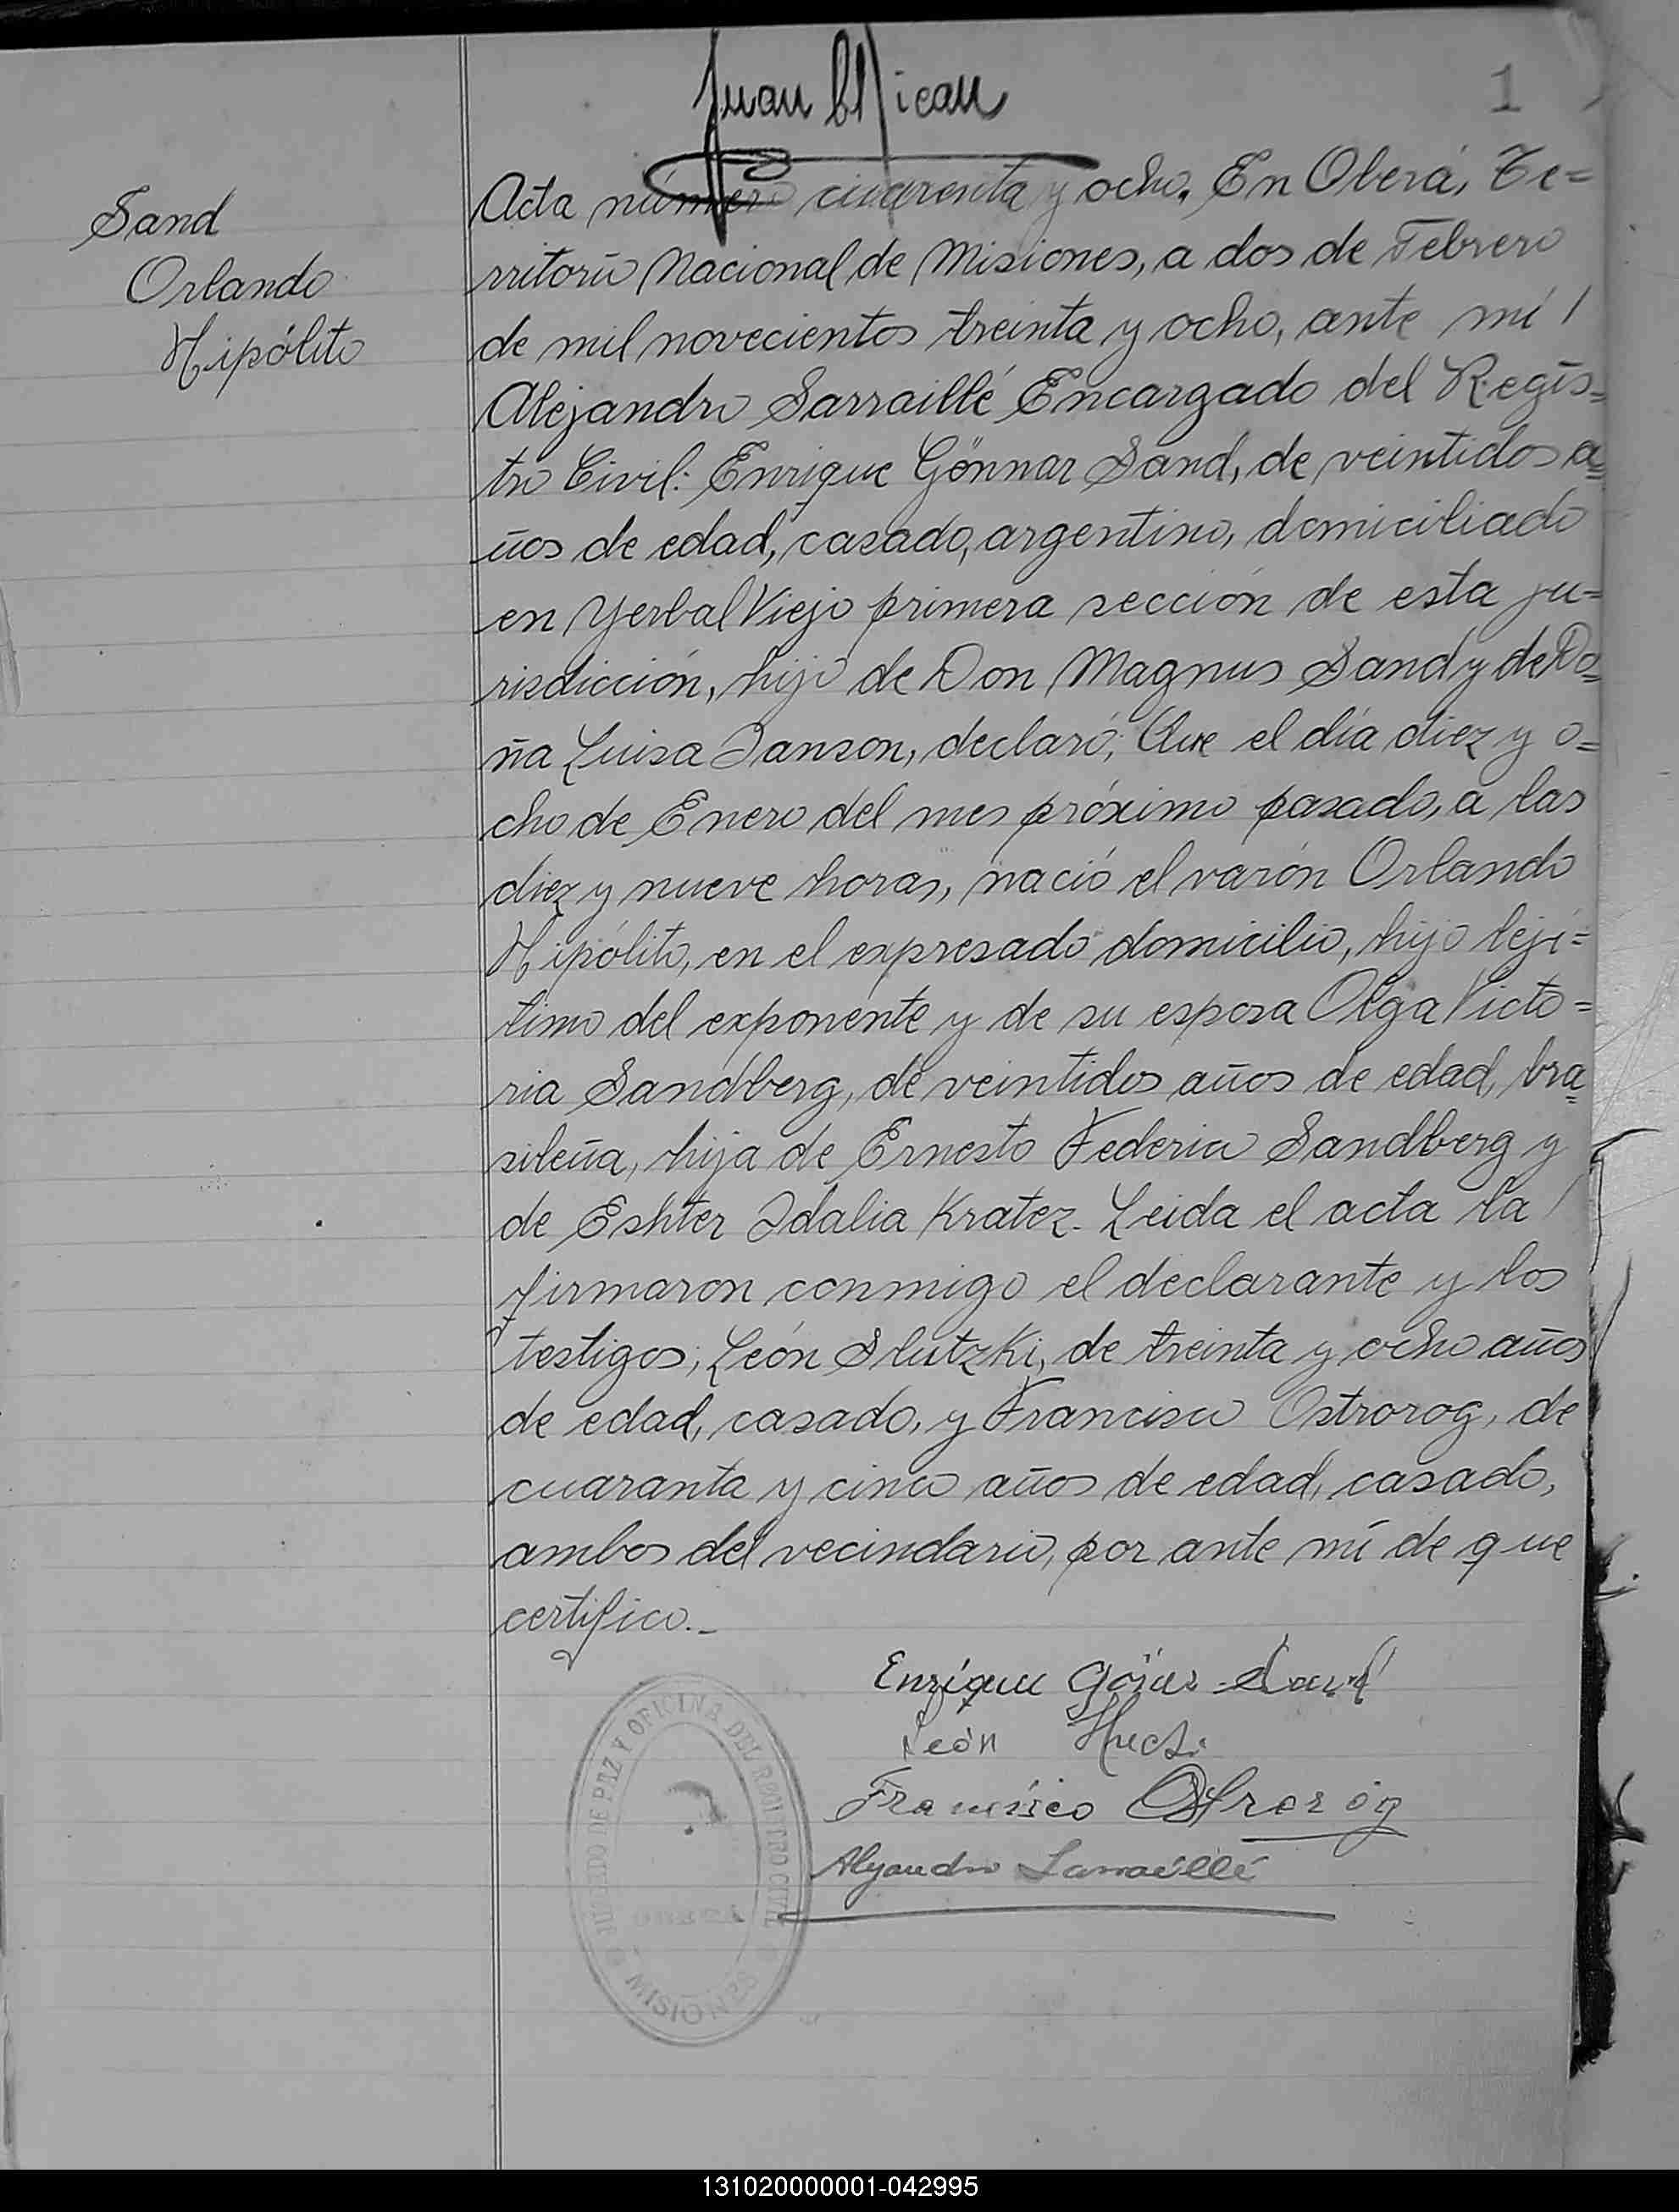 Juan
1
Sand
Orlando
Hipólito
Acta número cuarenta y ocho. En Oberá, Te=
rritorio Nacional de Misiones, a dos de Febrero
de mil novecientos treinta y ocho, ante mí /
Alejandro Sarraillé Encargado del Regis=
tro Civil: Enrique Gönnar Sand, de veintidos a=
ños de edad, casado, argentino, domiciliado
en Yerbal Viejo primera sección de esta ju=
risdicción, hijo de Don Magnus Sand y de Do=
ña Luisa Janson, declaró; Que el día diez y o=
cho de Enero del mes próximo pasado, a las
diez y nueve horas, nació el varón Orlando
Hipólito, en el expresado domicilio, hijo leji=
timo del exponente y de su esposa Olga Victo=
ria Sandberg, de veintidos años de edad, bra=
sileña, hija de Ernesto Federico Sandberg y
de Eshter Idalia Kratez. Leida el acta la /
firmaron conmigo el declarante y los
testigos; León Slutzki, de treinta y ocho años
de edad, casado, y Francisco Ostrorog, de
cuaranta y cinco años de edad, casado,
ambos del vecindario, por ante mí de que
certifico._
Enrique Sand
León
Francisco Ostrorog
Alejandro Sarraillé
JUZGADO DE PAZ Y OFICINA DEL REGISTRO CIVIL
OBERÁ
MISIONES
131020000001-042995